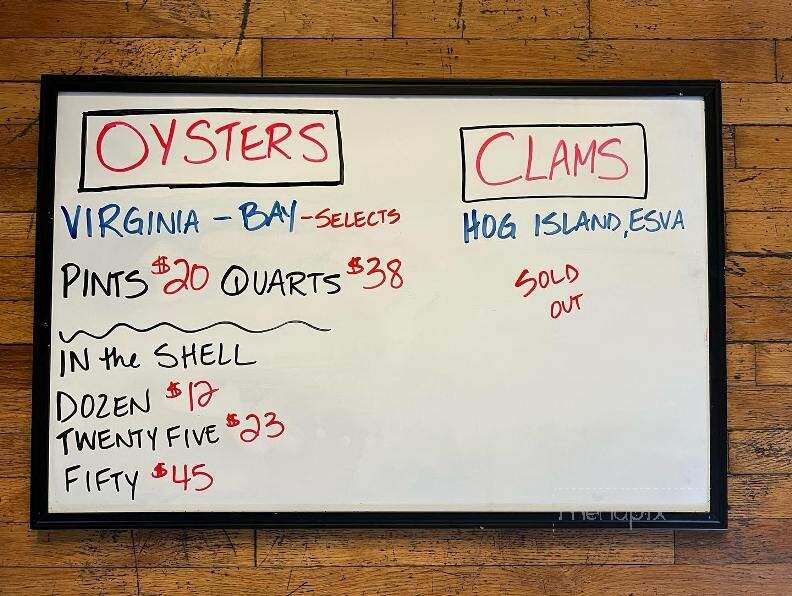 OYSTERS
VIRGINIA - BAY - SELECTS
PINTS $20 QUARTS $38
IN the SHELL
DOZEN $12
TWENTY FIVE $23
FIFTY $45
CLAMS
HOG ISLAND, ESVA
SOLD
OUT
menupix